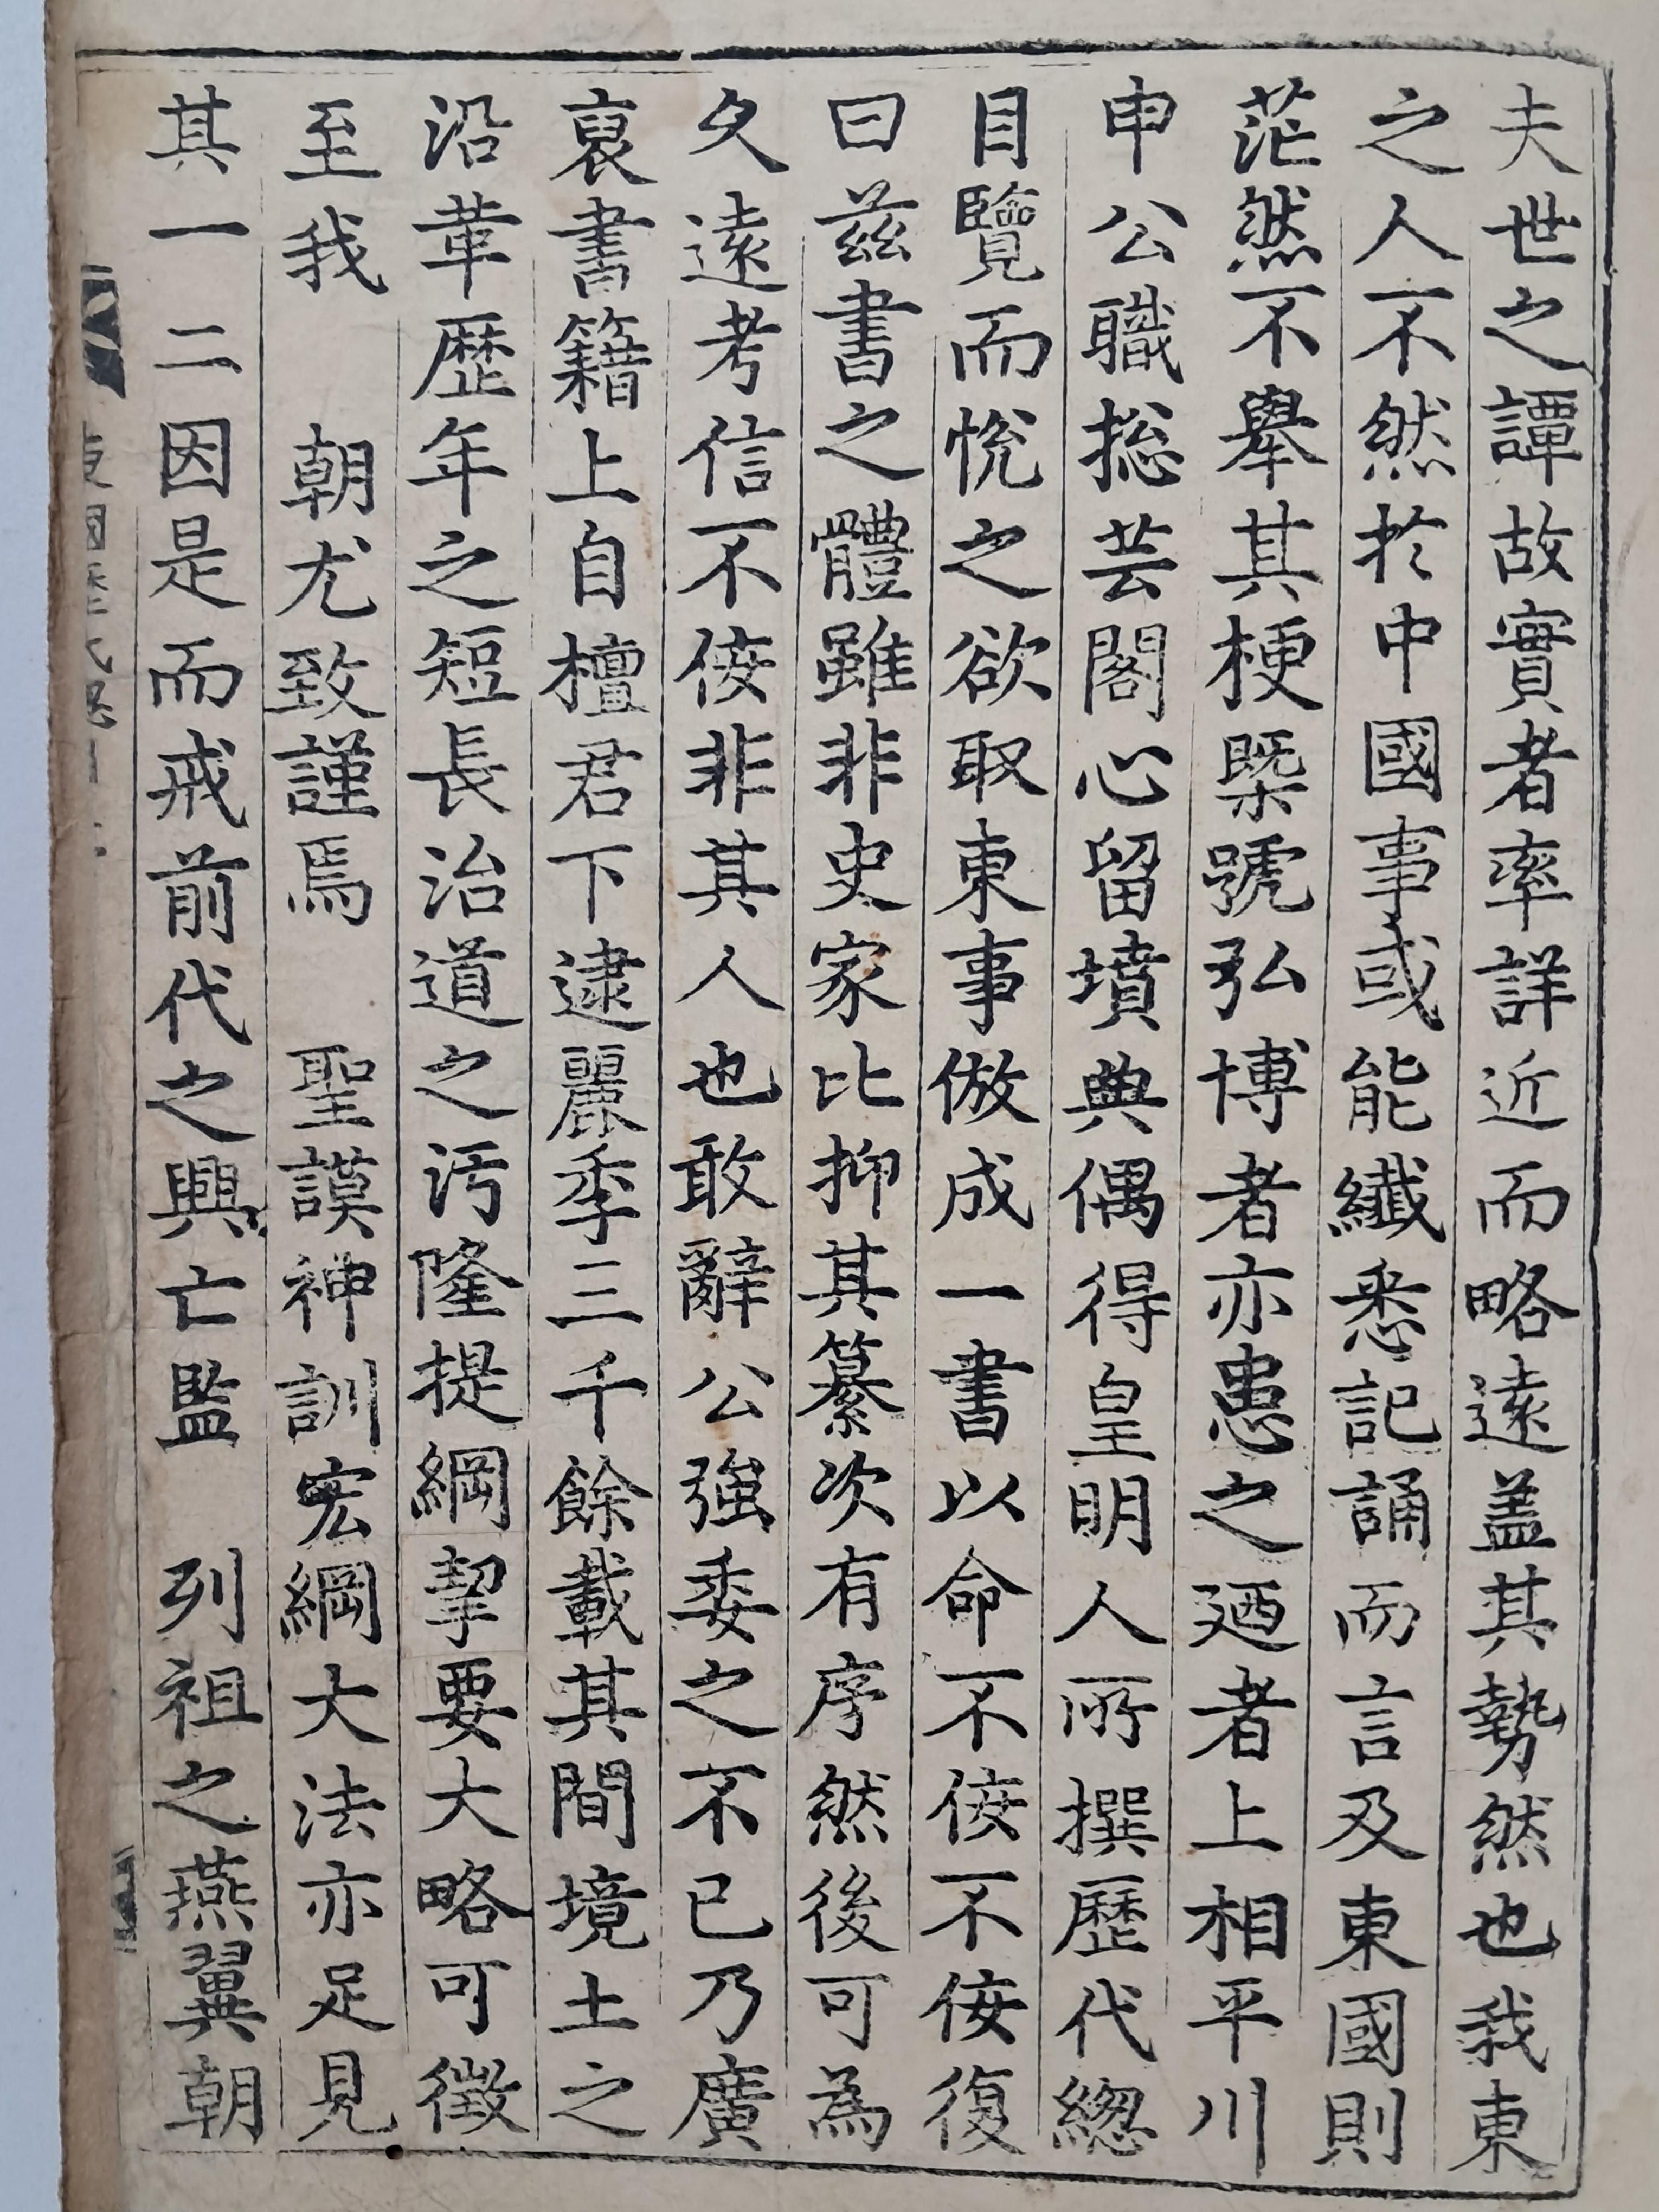 夫世之譚故實者率詳近而略遠盖其勢然也我東
之人不然扵中國事或能纖悉記誦而言及東國則
茫然不舉其梗槩號弘博者亦患之廼者上相平川
申公職捴芸閣心留墳典偶得皇明人所撰歷代緫
目覽而悅之欲取東事倣成一書以命不侫不侫復
曰兹書之體雖非史家比抑其纂次有序然後可為
久遠考信不侫非其人也敢辭公強委之不已乃廣
裒書籍上自檀君下逮麗季三千餘載其間境土之
沿革歷年之短長治道之汚隆提綱挈要大略可徵
至我 朝尤致謹焉 聖謨神訓宏綱大法亦足見
其一二因是而戒前代之興亡監 列祖之燕翼朝